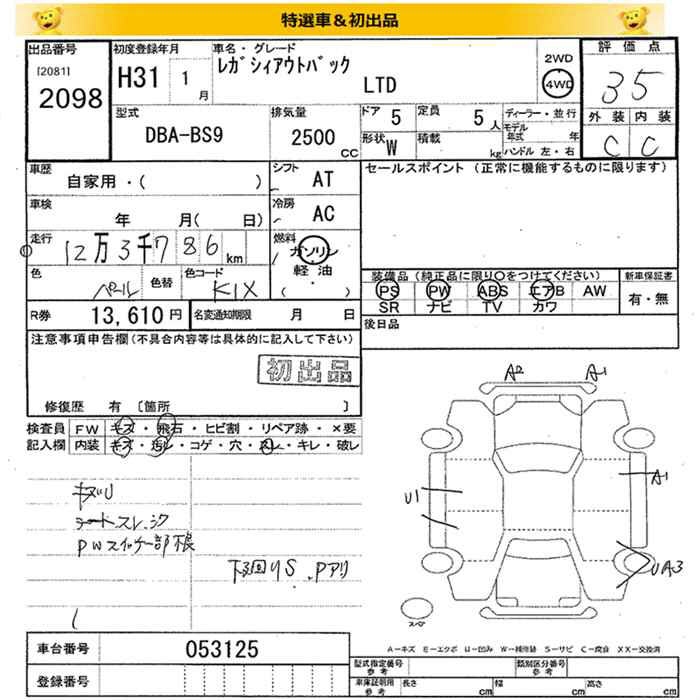 特選車＆初出品
出品番号 [2081] 2098
初度登録年月 H31 1月
車名・グレード レガシィアウトバック LTD
2WD 4WD
評価点 35
外装 内装 C C
型式 DBA-BS9
排気量 2500 CC
ドア 5 定員 5人
形状 W 積載 kg
ディーラー・並行
モデル年式 年
ハンドル 左・右
車歴 自家用・( )
シフト AT
セールスポイント (正常に機能するものに限ります)
車検 年 月( 日)
冷房 AC
走行 12万3千786km
燃料 ガソリン 軽油 ( ・ )
色 パール 色替 色コード K1X
装備品 (純正品に限り○をつけてください) 新車保証書
PS PW ABS エアB AW 有・無
SR ナビ TV カワ
R券 13,610円 名変通知期限 月 日
後日品
注意事項申告欄(不具合内容等は具体的に記入して下さい)
初出品
修復歴 有 〔箇所 〕
検査員 FW キズ・飛石・ヒビ割・リペア跡・×要
記入欄 内装 キズ・汚レ・コゲ・穴・スレ・キレ・破レ
A2 A1
A1
U1
UA3
キズU
シートスレ
PWスイッチ一部
下回りS.Pアリ
スペア
車台番号 053125
登録番号
A-キズ E-エクボ U-凹み W-補修跡 S-サビ C-腐食 XX-交換済
型式指定番号 参考 類別区分番号 参考
車庫証明用 参考 長さ cm 幅 cm 高さ cm